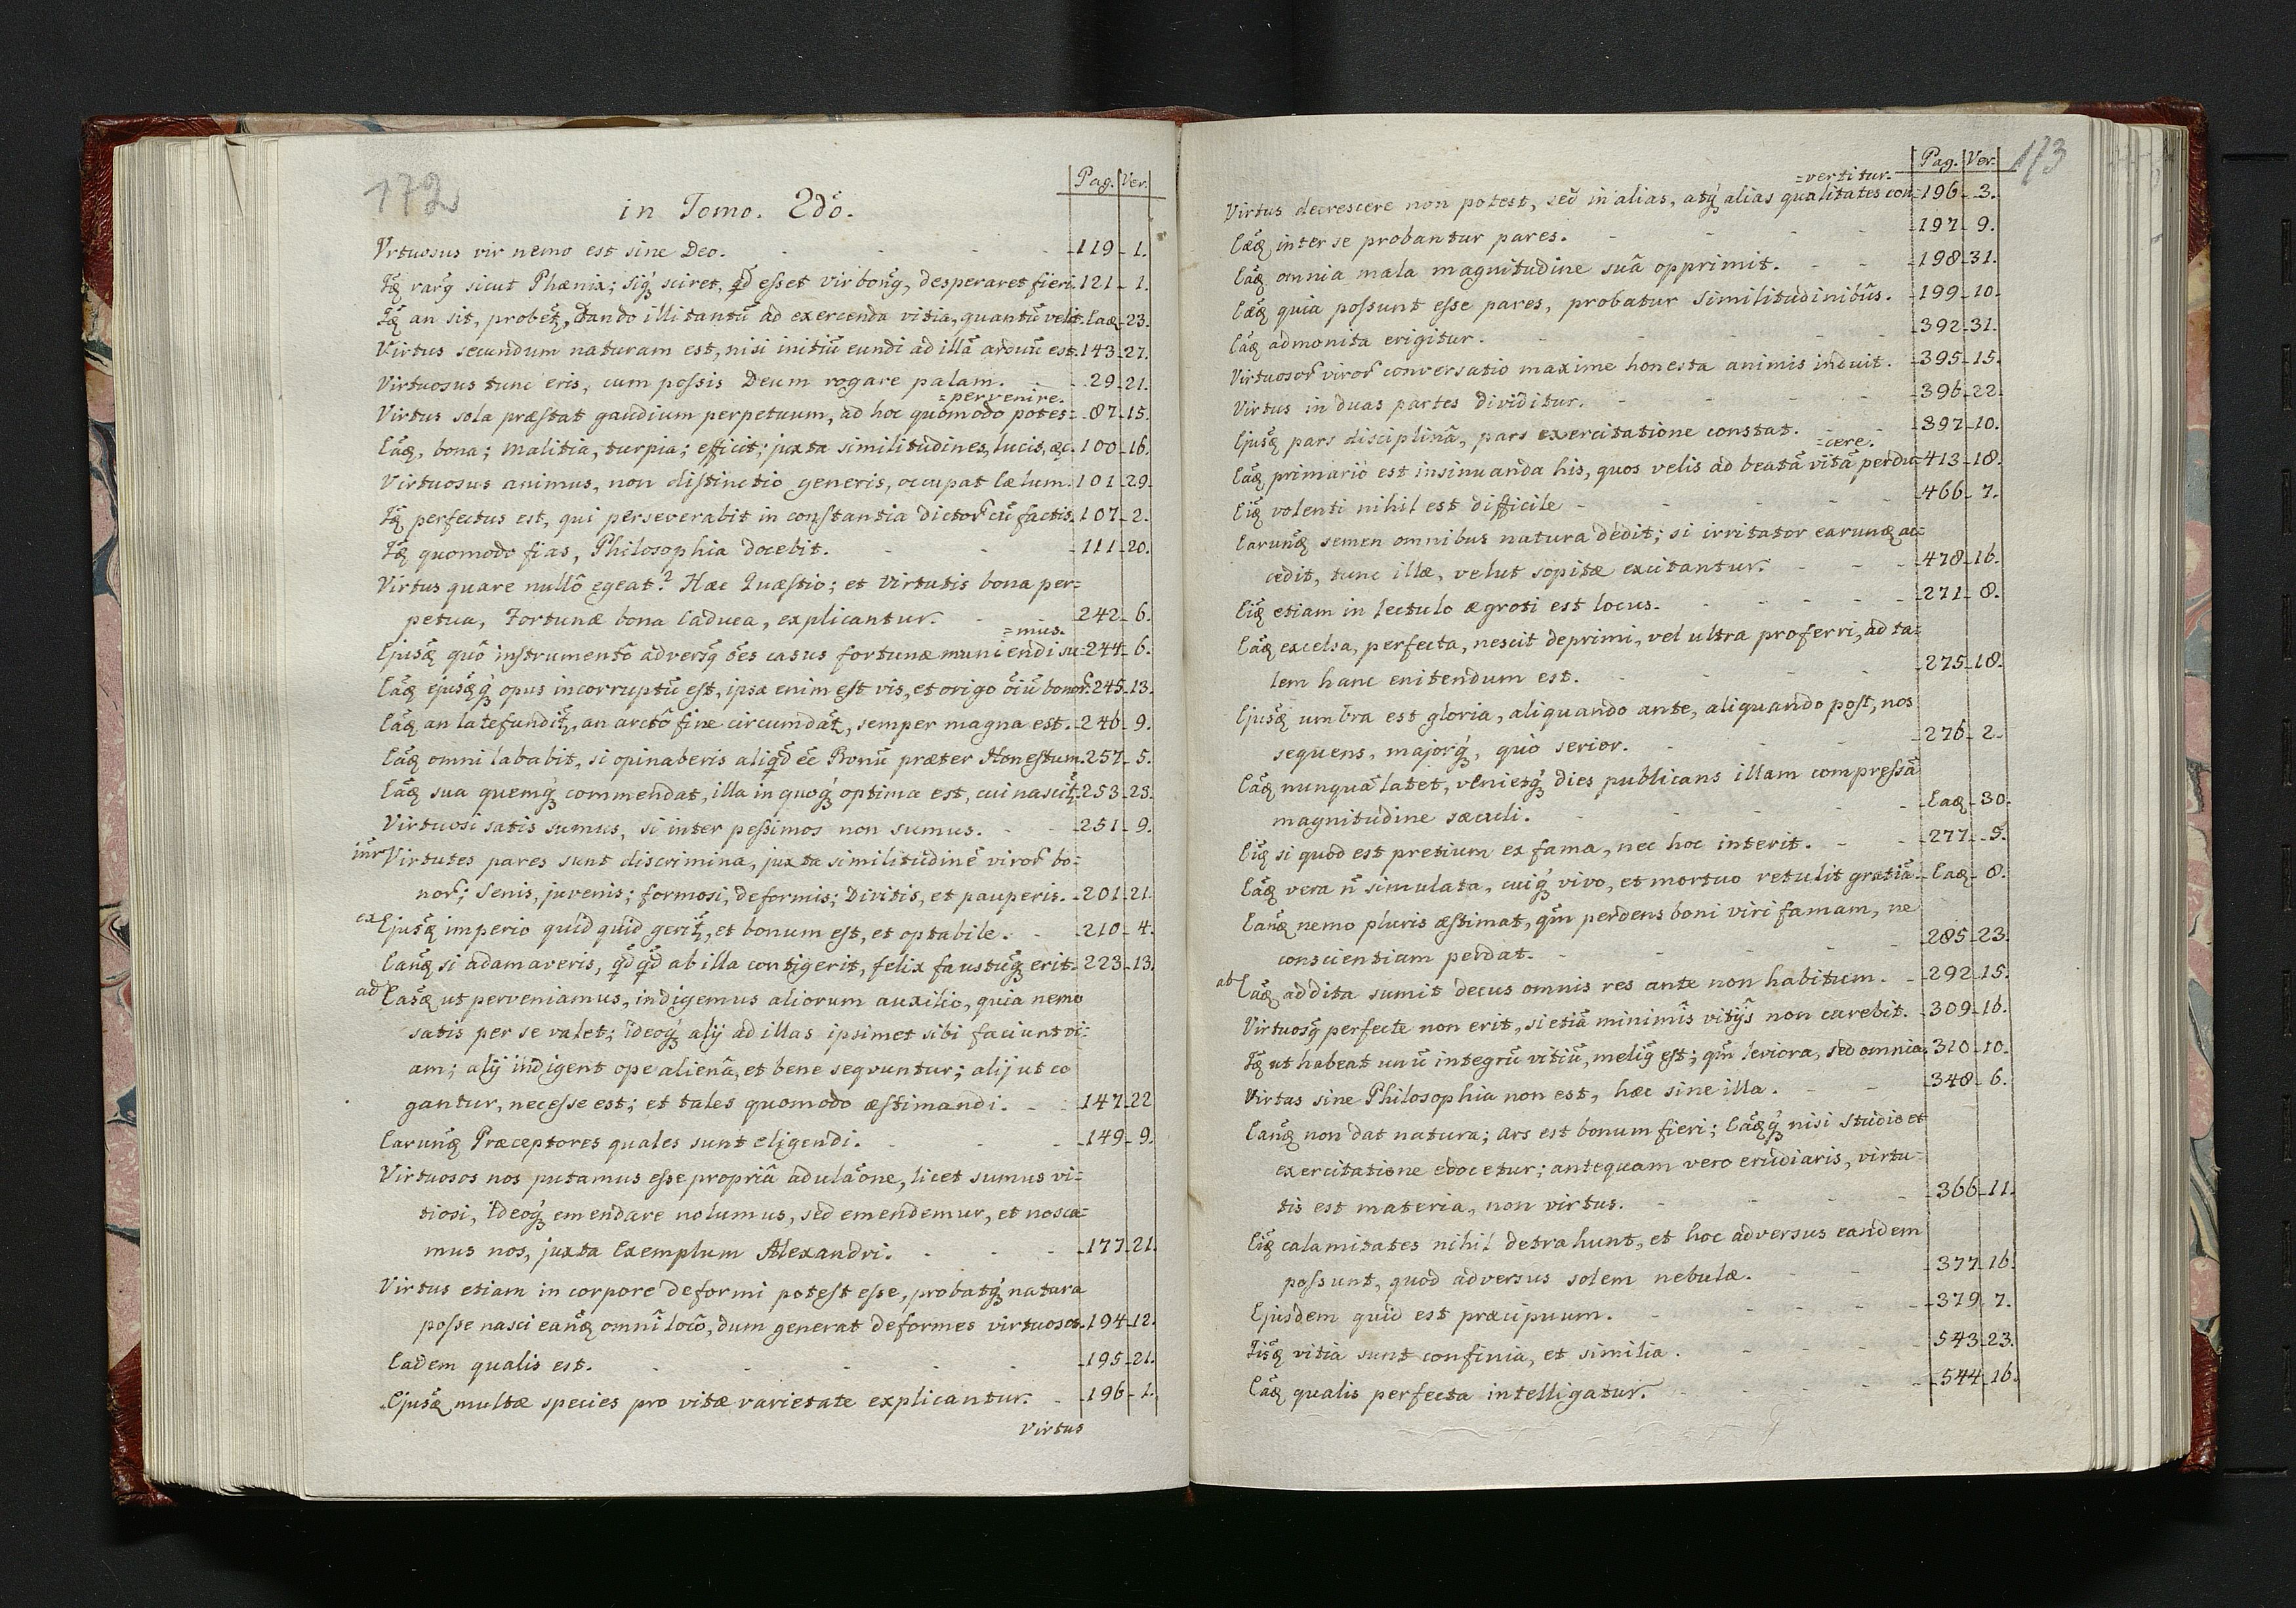 172
Pag. Ver.
in Tomo. 2dô.
Vrtuosus vir nemo est sine Deo. 119 1.
Idẽ rarꝰ sicut Phœnix; siqꝫ sciret, qđ esset vir bonꝰ, desperaret fieri. 121 1.
Idẽ an sit, probet̃, dando illi tantũ ad exercenda vitia, quantũ velit. Eadẽ 23.
Virtus secundum naturam est, nisi initiũ eundi ad illã arduũ est. 143 27.
Virtuosus tunc eris, cum possis Deum rogare palam. 29 21.
=pervenire.
Virtus sola præstat gaudium perpetuum, ad hoc quomodo potes= 87 15.
Eadẽ, bona; malitia, turpia; efficit; juxta similitudines, lucis, &c. 100 16.
Virtuosus animus, non distinctio generis, occupat Cælum. 101 29.
Idẽ perfectus est, qui perseverabit in constantia dictoꝝ cũ factis. 107 2.
Idẽ quomodo fias, Philosophia docebit. 111 20.
Virtus quare nullô egeat? Hæc Quæstio; et Virtutis bona per=
petua, Fortunæ bona Caduca, explicantur. 242 6.
=mus.
Ejusdẽ quô instrumentô adversꝰ õẽs casus fortunæ muniendi su= 244 6.
Eadẽ ejusdẽqꝫ opus incorruptũ est, ipsa enim est vis, et origo oĩũ bonoꝝ. 245 13.
Eadẽ an late fundit̃, an arctô fine circumdat̃, semper magna est. 246 9.
Eadẽ omni lababit, si opinaberis aliqđ eẽ Bonũ præter Honestum. 257 5.
Eadẽ sua quemqꝫ commendat, illa in quoqꝫ optima est, cui nascit̃. 253 23.
Virtuosi satis sumus, si inter pessimos non sumus. 251 9.
int̃r Virtutes pares sunt discrimina, juxta similitudinẽ viroꝝ bo=
noꝝ; senis, juvenis; formosi, deformis; Divitis, et pauperis. 201 21.
ex Ejusdẽ imperio quid quid gerit̃, et bonum est, et optabile. 210 4.
Eandẽ si adamaveris, qđqđ ab illa contigerit, felix faustũqꝫ erit. 223 13.
ad Easdẽ ut perveniamus, indigemus aliorum auxilio, quia nemo
satis per se valet; ideoqꝫ alij ad illas ipsimet sibi faciunt vi=
am; alij indigent ope alienâ, et bene seqvuntur; alij ut co
gantur, necesse est; et tales quomodo æstimandi. 147 22
Earundẽ Præceptores quales sunt eligendi. 149 9.
Virtuosos nos putamus esse propriâ adulãone, licet sumus vi=
tiosi, ideoqꝫ emendare nolumus, sed emendemur, et nosca=
mus nos, juxta Exemplum Alexandri. 177 21.
Virtus etiam in corpore deformi potest esse, probatqꝫ natura
posse nasci eandẽ omnî locô, dum generat deformes virtuosos. 194 12.
Eadem qualis est. 195 21.
Ejusdẽ multæ species pro vitæ varietate explicantur. 196 1.
Virtus
173
Pag. Ver.
=vertitur.
Virtus decrescere non potest, sed in alias, atqꝫ alias qualitates con= 196 3.
Eædẽ inter se probantur pares. 197 9.
Eadẽ omnia mala magnitudine suâ opprimit. 198 31.
Eædẽ quia possunt esse pares, probatur similitudinibũs. 199 10.
Eadẽ admonita erigitur. 392 31.
Virtuosoꝝ viroꝝ conversatio maxime honesta animis induit. 395 15.
Virtus in duas partes dividitur. 396 22.
Ejusdẽ pars disciplinâ, pars exercitatione constat. 397 10.
=cere.
Eadẽ primario est insinuanda his, quos velis ad beatã vitã perdu= 413 18.
Eidẽ volenti nihil est difficile 466 7.
Earundẽ semen omnibus natura dedit; si irritator earundẽ ac=
cedit, tunc illæ, velut sopitæ excitantur. 478 16.
Eidẽ etiam in lectulo ægroti est locus. 271 8.
Eadẽ excelsa, perfecta, nescit deprimi, vel ultra proferri, ad ta=
lem hanc enitendum est. 275 18.
Ejusdẽ umbra est gloria, aliquando ante, aliquando post, nos
sequens, majorqꝫ, quò serior. 276 2.
Eadẽ nunquã latet, venietqꝫ dies publicans illam compressã
magnitudine sæculi. Eadẽ 30.
Eidẽ si quod est pretium ex fama, nec hoc interit. 277 5.
Eadẽ vera ñ simulata, cuiqꝫ vivo, et mortuo retulit gratiã. Eadẽ 8.
Eandẽ nemo pluris æstimat, qũm perdens boni viri famam, ne
conscientiam perdat. 285 23.
ab Eadẽ addita sumit decus omnis res ante non habitum. 292 15.
Virtuosꝰ perfecte non erit, si etiã minimîs vitijs non carebit. 309 16.
Idẽ ut habeat unũ integrũ vitiũ, meliꝰ est; qũm leviora, sed omnia. 310 10.
Virtus sine Philosophia non est, hæc sine illa. 348 6.
Eandẽ non dat natura; ars est bonum fieri; Eadẽqꝫ nisi studio et
exercitatione edocetur; antequam vero erudiaris, virtu=
tis est materia, non virtus. 366 11.
Eidẽ calamitates nihil detrahunt, et hoc adversus eandem
possunt, quod adversus solem nebulæ. 377 16.
Ejusdem quid est præcipuum. 379 7.
Iisdẽ vitia sunt confinia, et similia. 543 23.
Eadẽ qualis perfecta intelligatur. 544 16.